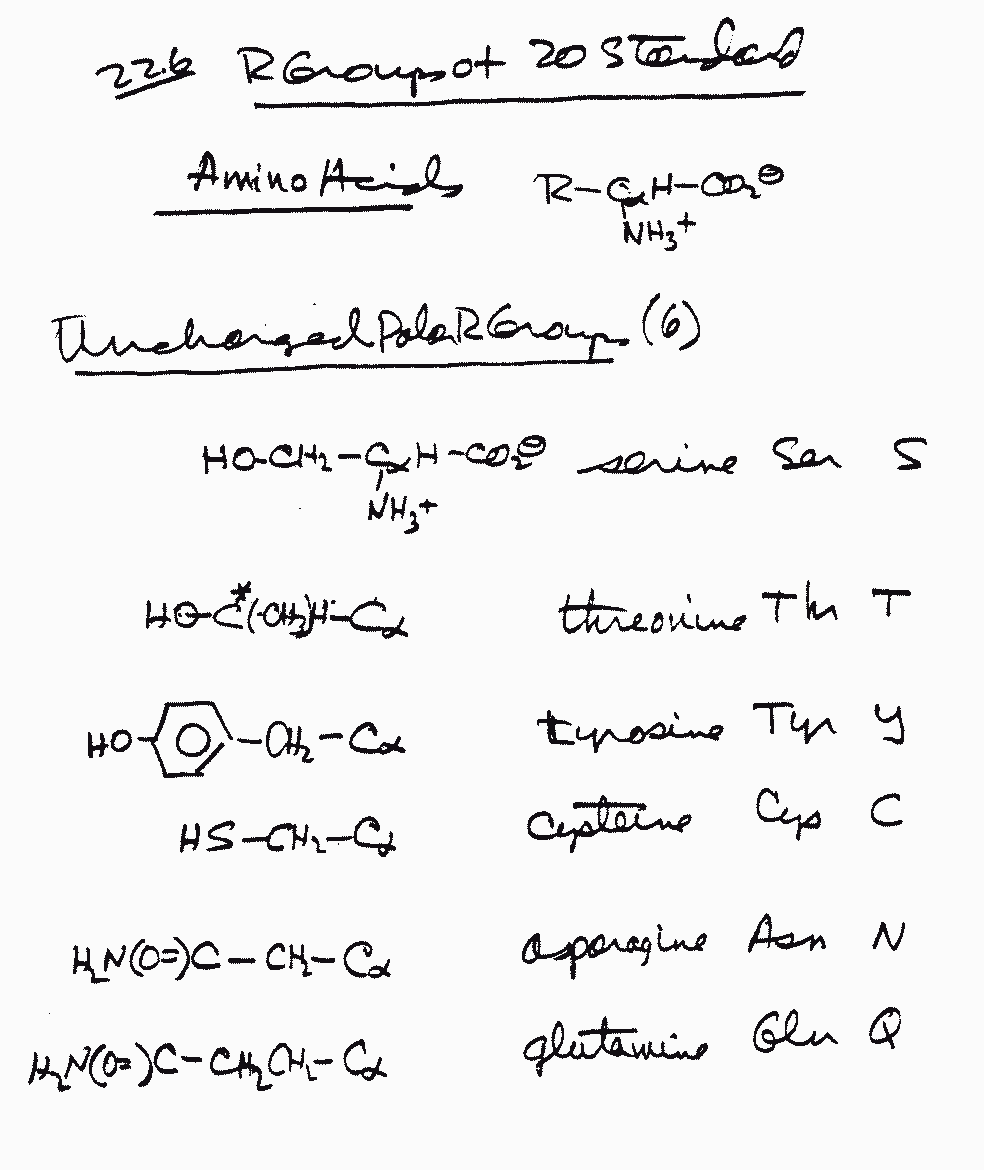 22.6 R Groups of 20 Standard
Amino Acids R-CαH-CO₂⊖
NH₃+
Uncharged Polar R Groups (6)
HO-CH₂-CαH-CO₂⊖ serine Ser S
NH₃+
HO-C*(-CH₃)H-Cα threonine Thr T
HO-⌬-CH₂-Cα tyrosine Tyr Y
HS-CH₂-Cα cysteine Cys C
H₂N(O=)C-CH₂-Cα asparagine Asn N
H₂N(O=)C-CH₂CH₂-Cα glutamine Gln Q